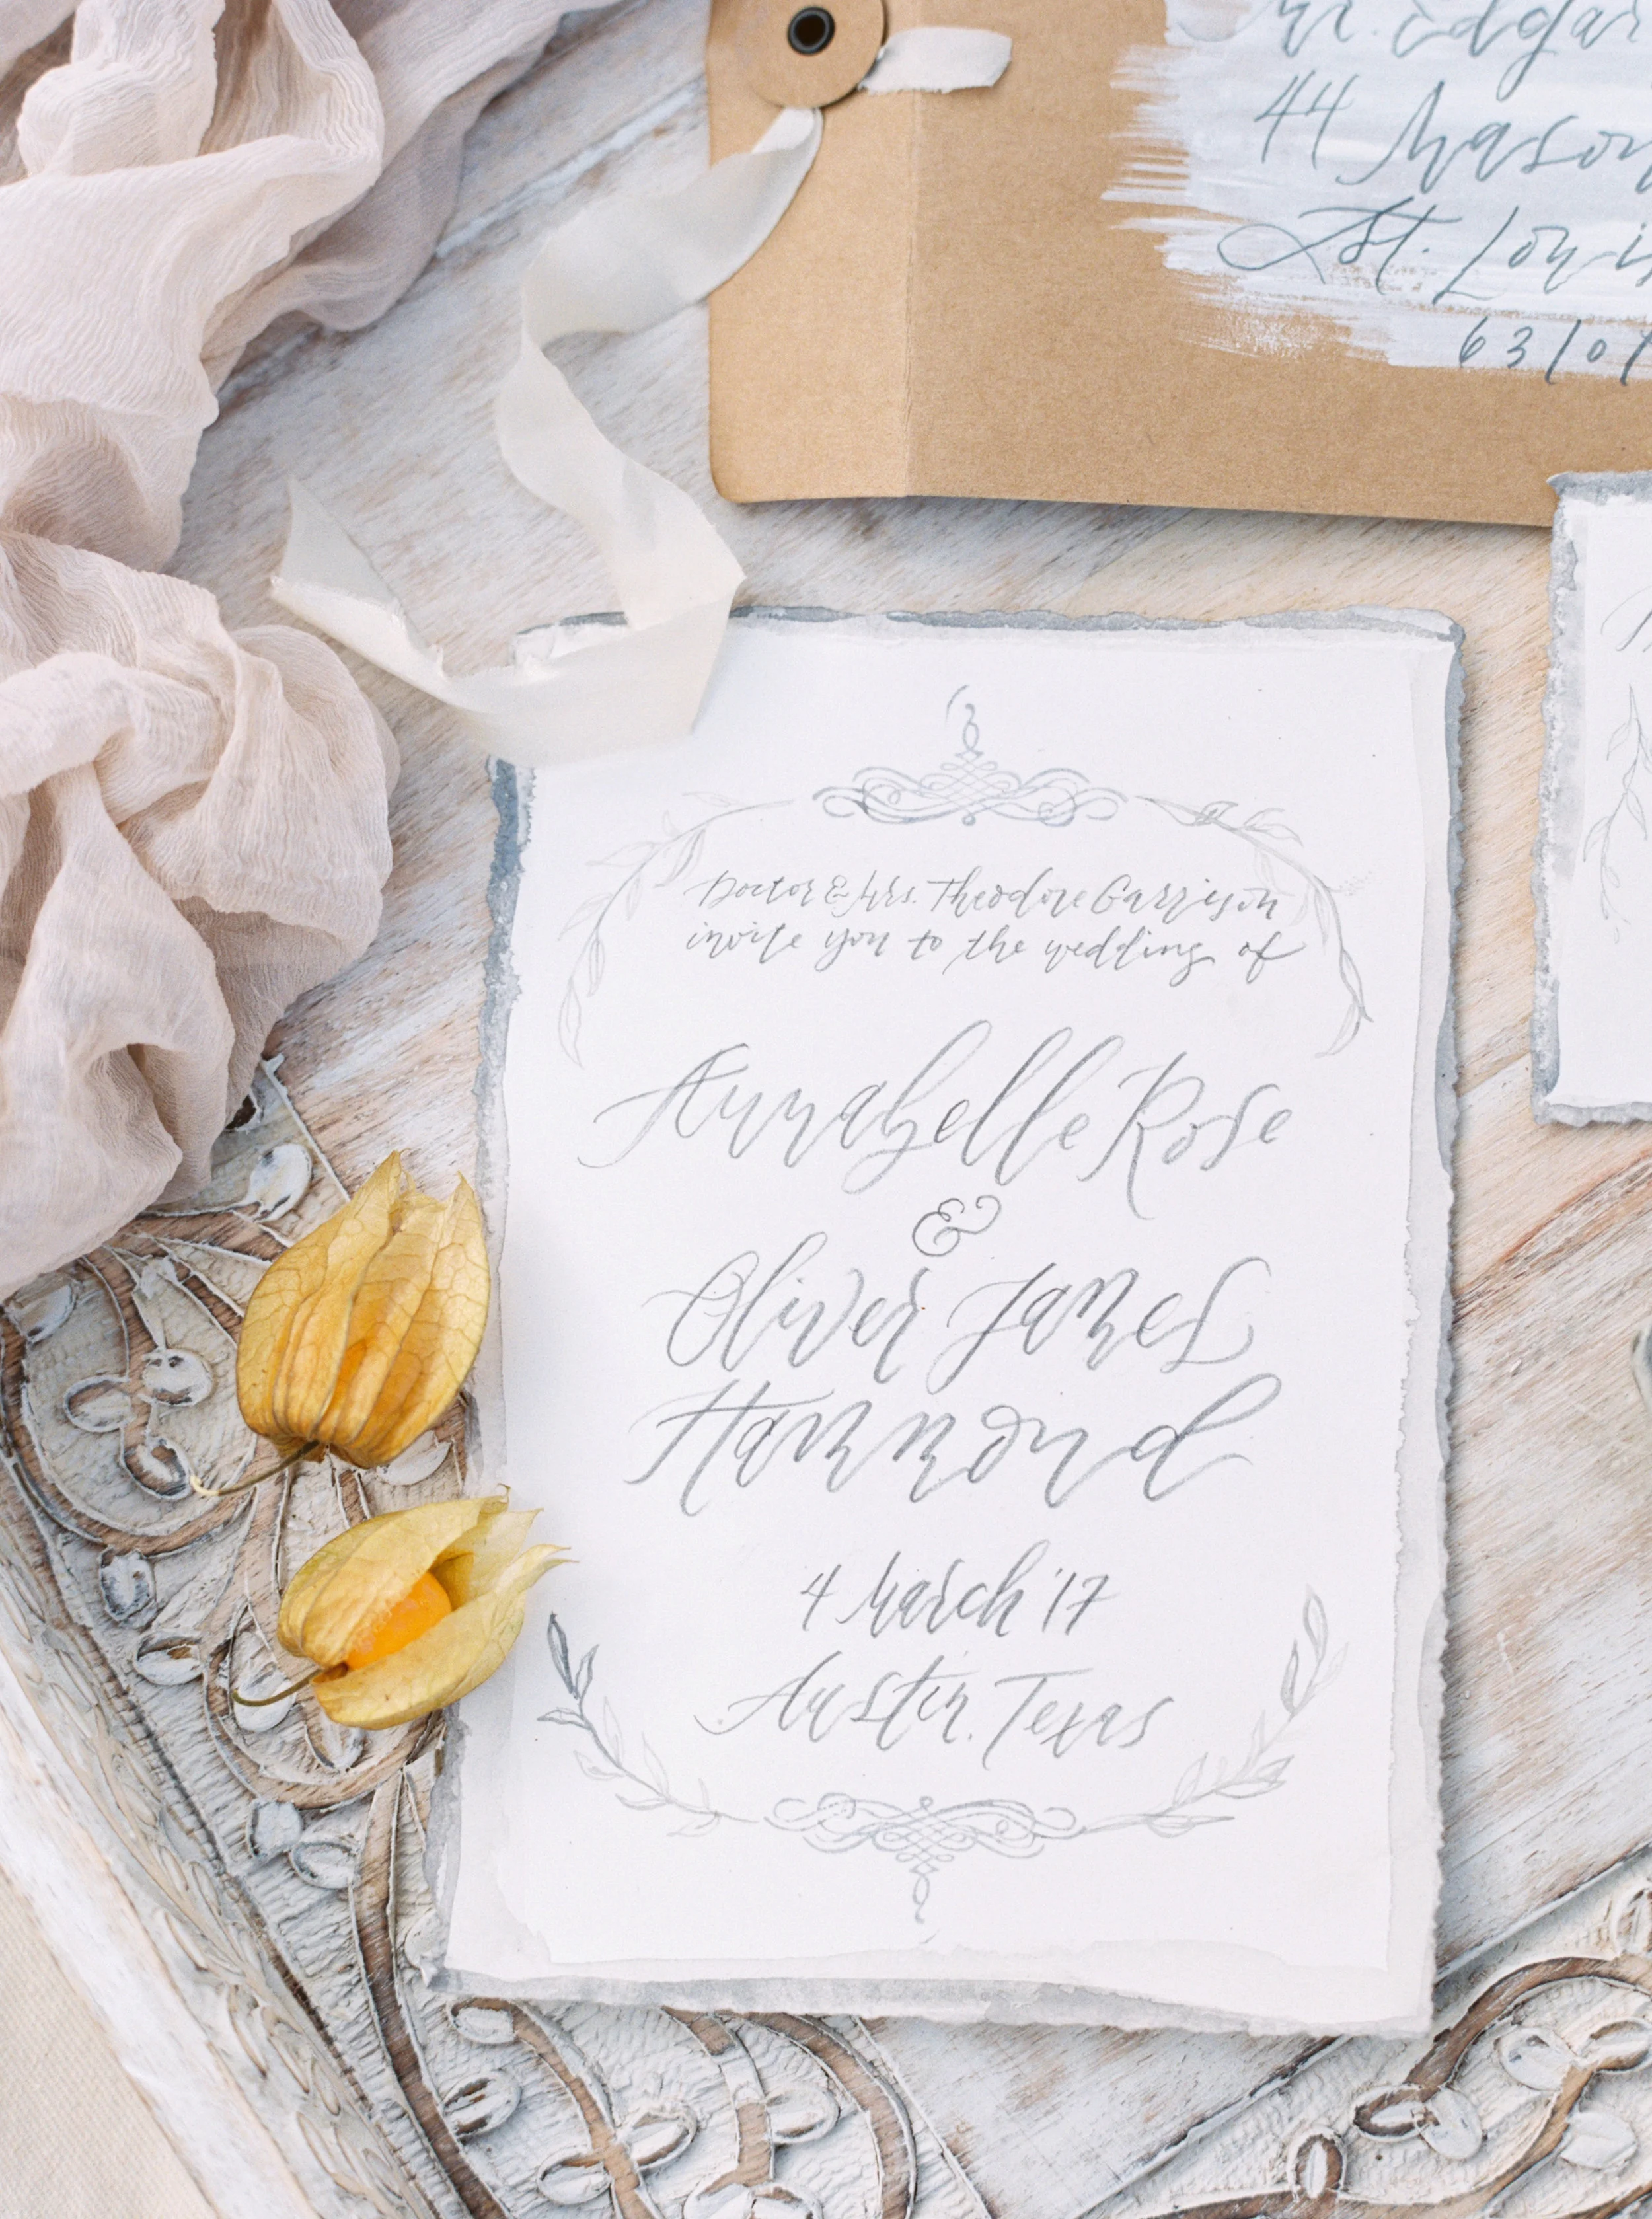 Mr. Edgar
44 Mason
St. Louis
63101
Doctor & Mrs. Theodore Garrison
invite you to the wedding of
Annabelle Rose
&
Oliver James
Hammond
4 March '17
Austin, Texas